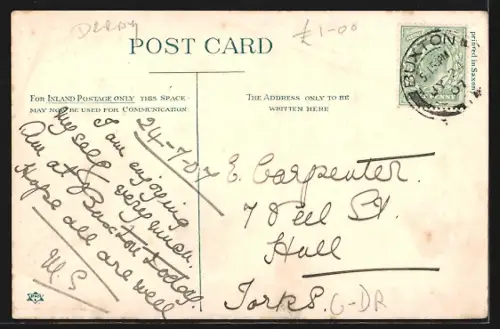 DERBY
£1-00
POST CARD
printed in Saxony
BUXTON
5.15 PM
For Inland Postage only this space
may now be used for Communication
The Address only to be
written here
24-7-07
I am enjoying
myself very much.
Am at Buxton today.
Hope all are well
M. S
E. Carpenter.
7 Peel St.
Hull
Yorks.
G-DR